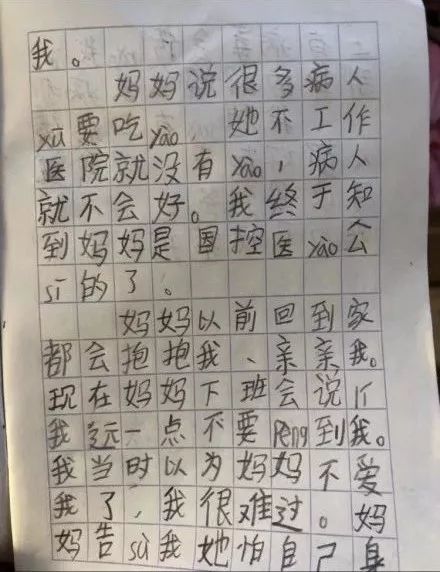 我。
妈妈说很多病人
xū要吃yào 她不工作
医院就没有yào，病人
就不会好。我终于知
到妈妈是国控医yào公
sī的了。
妈妈以前回到家
都会抱抱我、亲亲我。
现在妈妈下班会说lí
我远一点不要pèng到我。
我当时以为妈妈不爱
我了，我很难过。妈
妈告sù我她怕自己身